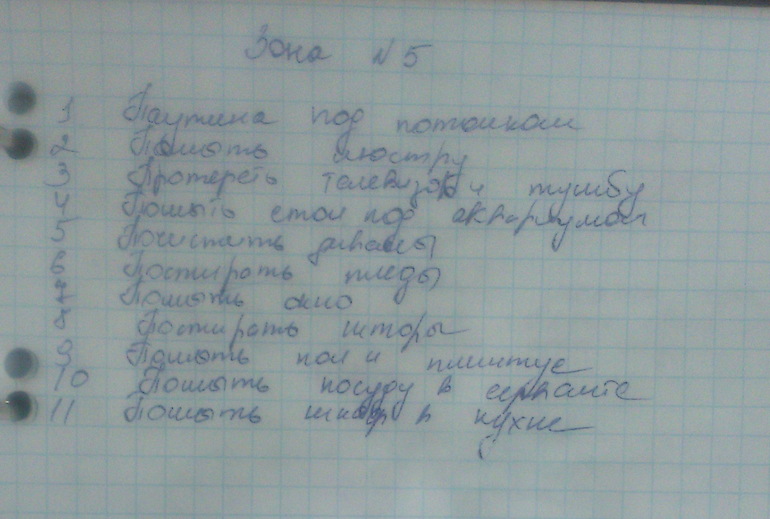 Зона N 5
1 Паутина под потолком
2 Помыть люстру
3 Протереть телевизор и тумбу
4 Помыть стол под аквариумом
5 Почистить диваны
6 Постирать пледы
7 Помыть окно
8 Постирать шторы
9 Помыть пол и плинтус
10 Помыть посуду в серванте
11 Помыть шкаф в кухне